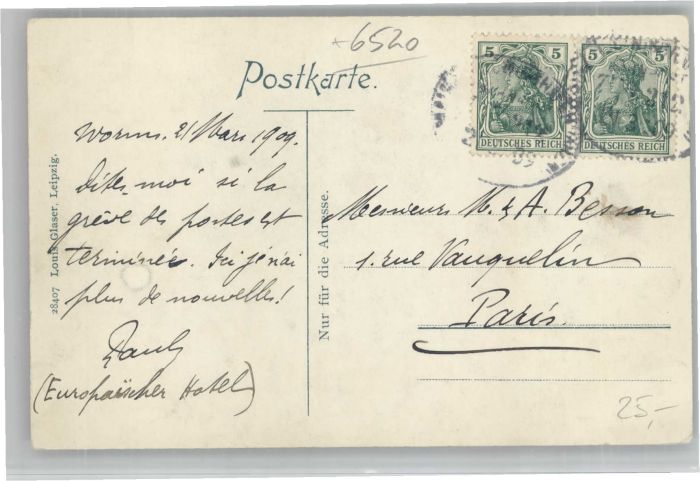 6520
5 5
5 5
DEUTSCHES REICH
DEUTSCHES REICH
Postkarte.
Worms. 21 Mars 1909.
Dites-moi si la
grève des postes est
terminée. Ici je n'ai
plus de nouvelles!
(Europäischer Hotel)
28407 Louis Glaser, Leipzig.
Nur für die Adresse.
Messieurs M. & A. Besson
1. rue Vauquelin
Paris.
25,-